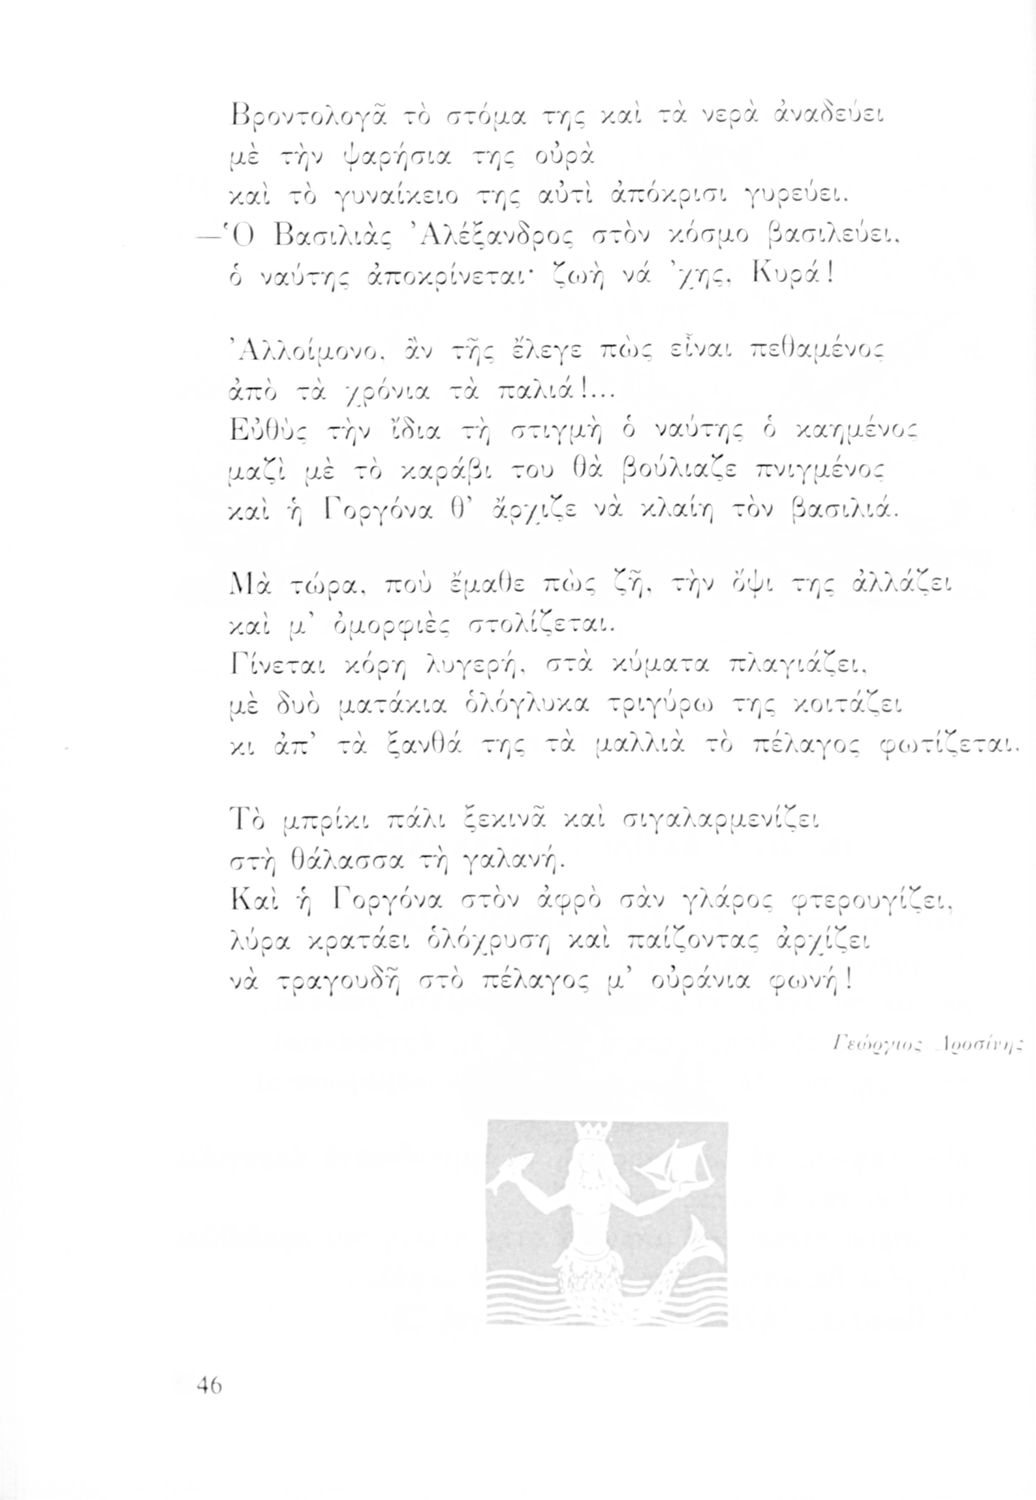 Βροντολογᾶ τὸ στόμα της καὶ τὰ νερὰ ἀναδεύει
μὲ τὴν ψαρήσια της οὐρὰ
καὶ τὸ γυναίκειο της αὐτὶ ἀπόκρισι γυρεύει.
—Ὁ Βασιλιὰς Ἀλέξανδρος στὸν κόσμο βασιλεύει,
ὁ ναύτης ἀποκρίνεται· ζωὴ νά 'χης, Κυρά!
Ἀλλοίμονο, ἂν τῆς ἔλεγε πὼς εἶναι πεθαμένος
ἀπὸ τὰ χρόνια τὰ παλιά!...
Εὐθὺς τὴν ἴδια τὴ στιγμὴ ὁ ναύτης ὁ καημένος
μαζὶ μὲ τὸ καράβι του θὰ βούλιαζε πνιγμένος
καὶ ἡ Γοργόνα θ' ἄρχιζε νὰ κλαίη τὸν βασιλιά.
Μὰ τώρα, ποὺ ἔμαθε πὼς ζῆ, τὴν ὄψι της ἀλλάζει
καὶ μ' ὀμορφιὲς στολίζεται.
Γίνεται κόρη λυγερή, στὰ κύματα πλαγιάζει,
μὲ δυὸ ματάκια ὁλόγλυκα τριγύρω της κοιτάζει
κι ἀπ' τὰ ξανθά της τὰ μαλλιὰ τὸ πέλαγος φωτίζεται.
Τὸ μπρίκι πάλι ξεκινᾶ καὶ σιγαλαρμενίζει
στὴ θάλασσα τὴ γαλανή.
Καὶ ἡ Γοργόνα στὸν ἀφρὸ σὰν γλάρος φτερουγίζει,
λύρα κρατάει ὁλόχρυση καὶ παίζοντας ἀρχίζει
νὰ τραγουδῆ στὸ πέλαγος μ' οὐράνια φωνή!
Γεώργιος Δροσίνης
46